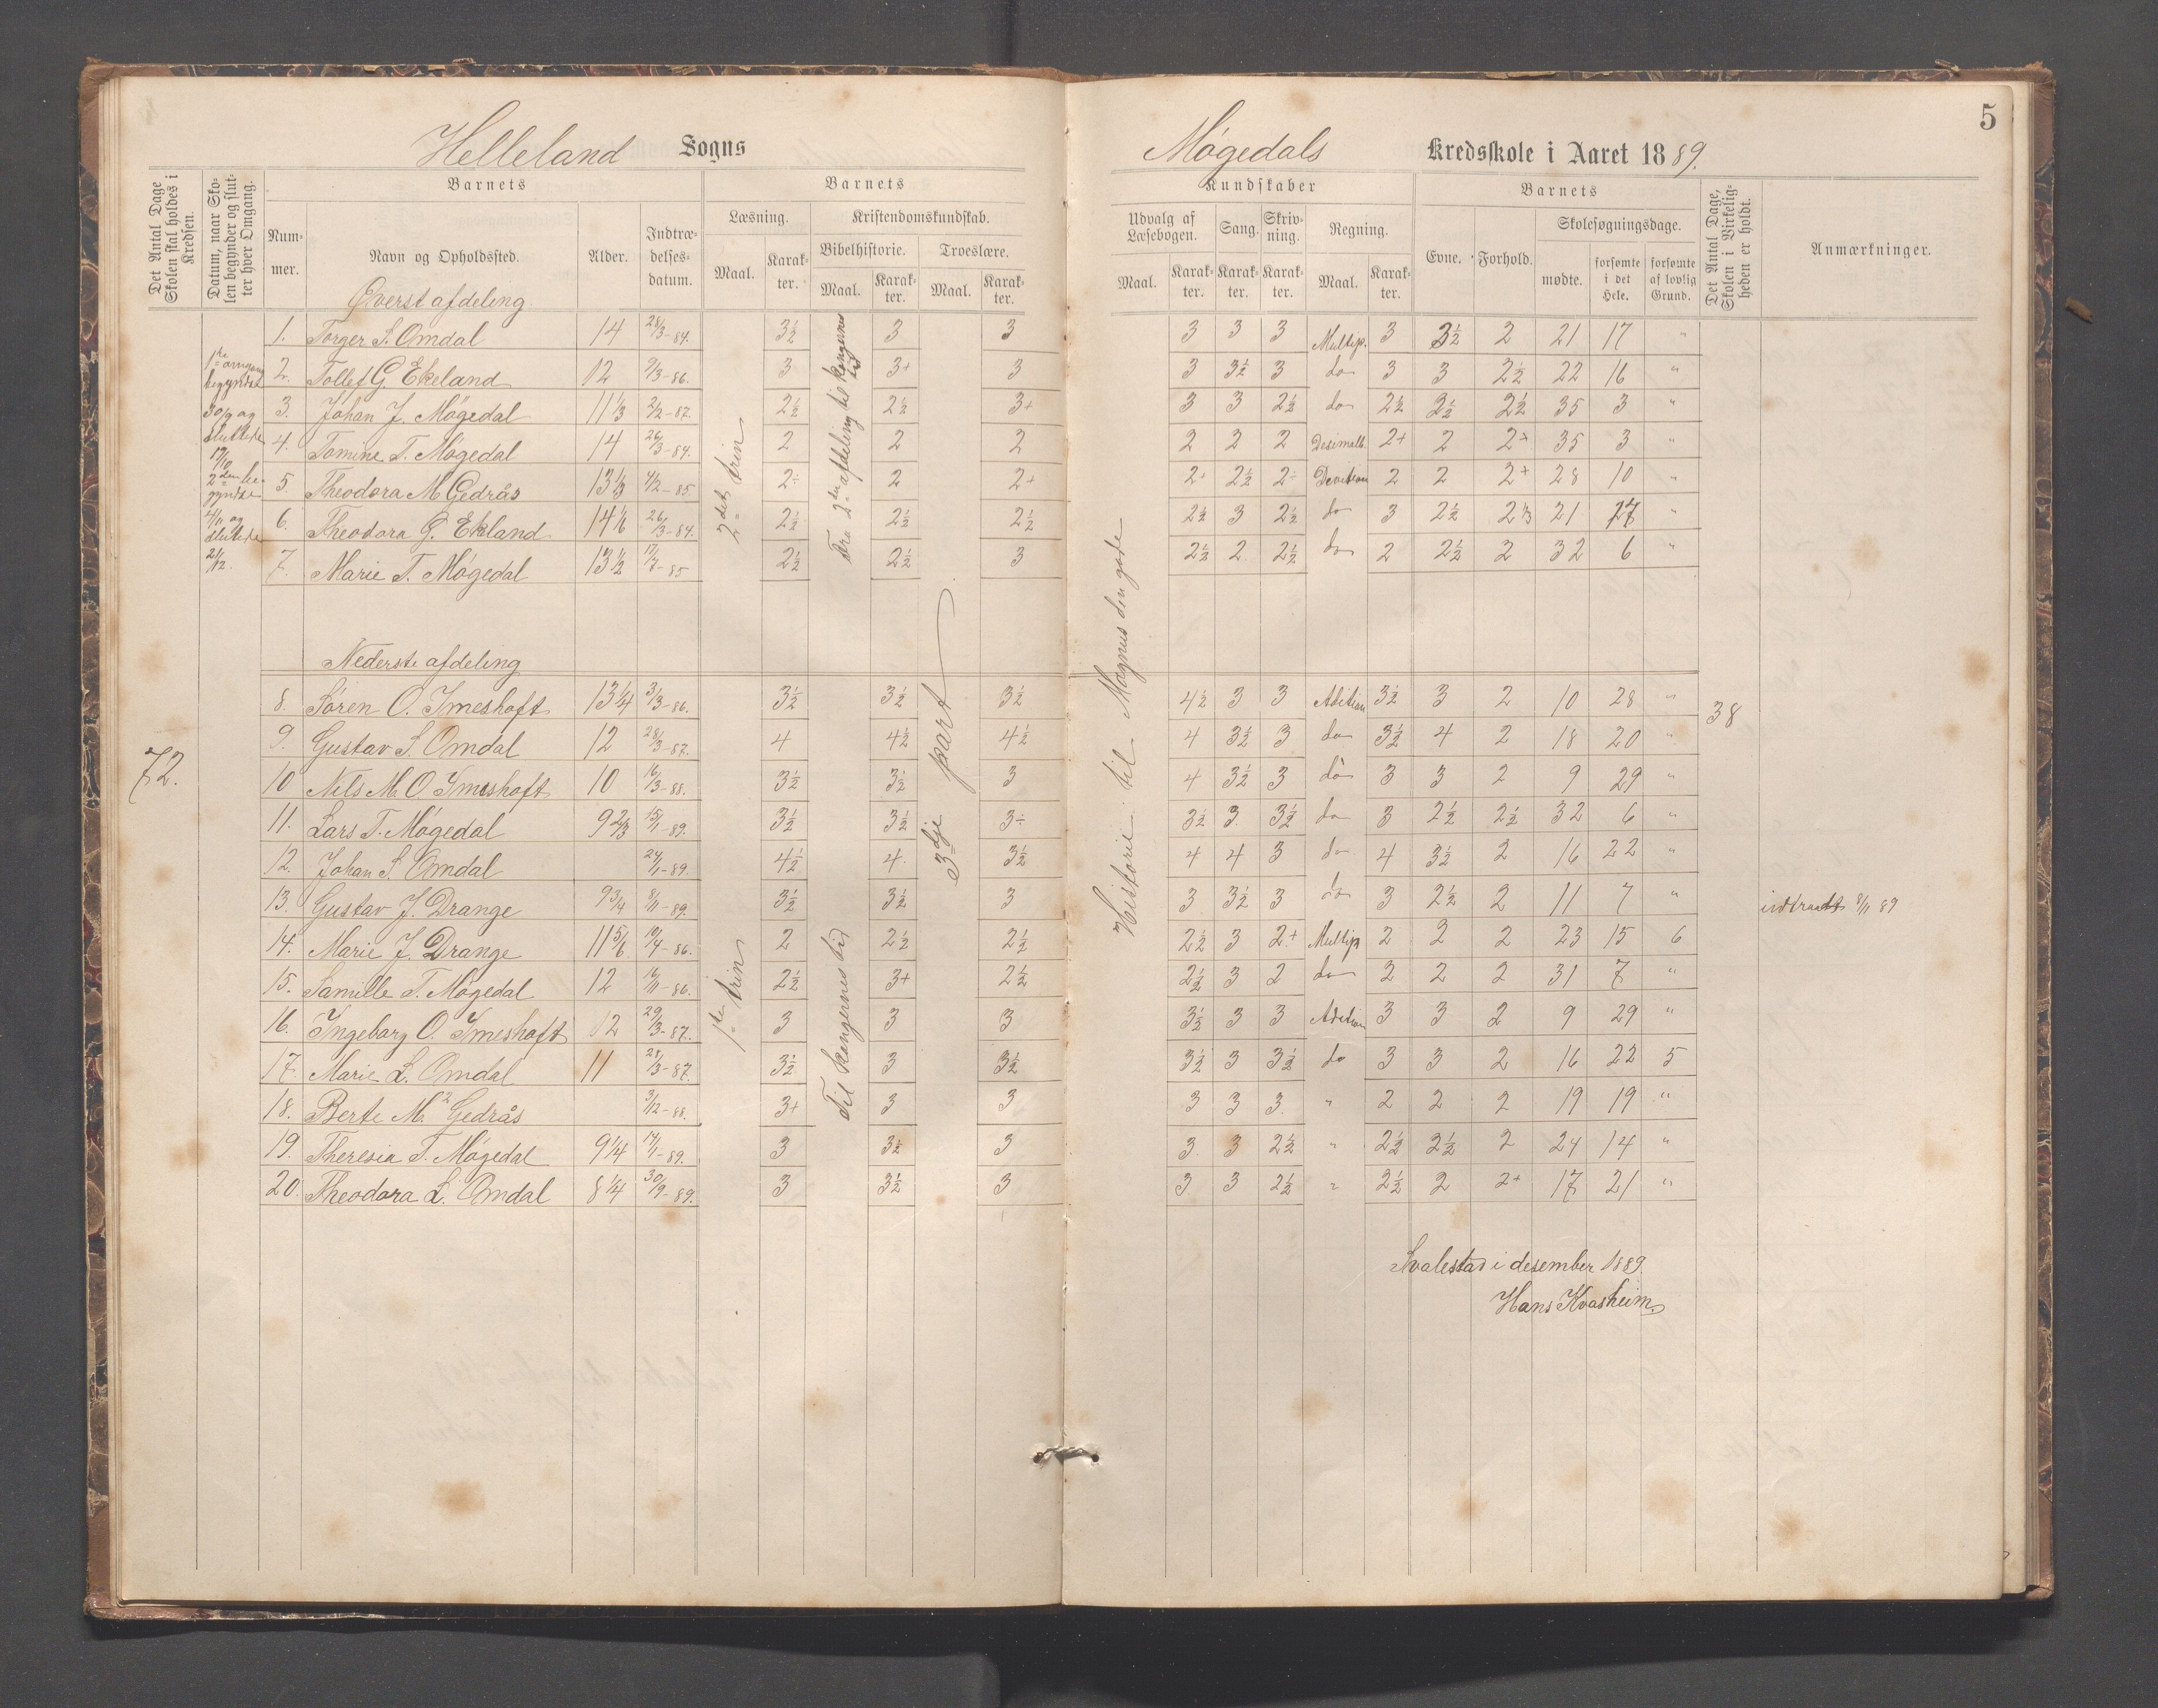 Helleland Sogns
Det Antal Dage Skolen skal holdes i Kredsen.
Datum, naar Skolen begynder og slutter hver Omgang.
Barnets
Nummer.
Navn og Opholdssted.
Alder.
Indtrædelsesdatum.
Barnets
Læsning.
Maal.
Karakter.
Kristendomskundskab.
Bibelhistorie.
Maal.
Karakter.
Troeslære.
Maal.
Karakter.
Øverst afdeling
1. Torger S. Omdal 14 28/3-84. 3½ 3 3
2. Tollef G. Ekeland 12 9/3-86. 3 3+ 3
3. Johan J. Møgedal 11⅓ 2/2-87. 2½ 2½ 3+
4. Tomine T. Møgedal 14 26/3-84. 2 2 2
5. Theodora M. Gedrås 13⅓ 4/2-85 2÷ 2 2+
6. Theodora G. Ekland 14⅙ 26/3-84. 2½ 2½ 2½
7. Marie T. Møgedal 13½ 2½ 2½ 3
1ste omgang
begyndte
30/9 og
sluttede
17/10
2den be-
gyndte
4/11 og
sluttede
2/12.
2det trin
Fra 2den afdeling til kongernes tid
Nederste afdeling
72.
8. Søren O. Imeshoft 13¼ 3/3-86. 3½ 3½ 3½
9. Gustav S. Omdal 12 28/3-87. 4 4½ 4½
10 Nils M. O Imeshoft 10 16/3-88. 3½ 3½ 3
11. Lars T. Møgedal 9⅔ 15/1-89. 3½ 3½ 3÷
12. Johan S. Omdal 24/1-89. 4½ 4. 3½
13. Gustav J. Drange 9¾ 8/11-89. 3½ 3½ 3
14. Marie J. Drange 11⅚ 19/4-86. 2 2½ 2½
15. Samille T. Møgedal 12 16/11-86. 2½ 3+ 2½
16. Ingeborg O. Imeshoft 12 29/3-87. 3 3 3
17. Marie L. Omdal 11 28/3-87. 3½ 3 3½
18. Berte M. Gedrås 3/12-88. 3+ 3 3
19. Theresia T. Møgedal 9¼ 17/1-89. 3 3½ 3
20. Theodora L. Omdal 8¼ 30/9-89. 3 3½ 3
1ste trin
Til kongernes tid
3dje part
5
Møgedals Kredsskole i Aaret 1889.
Kundskaber
Udvalg af Læsebogen.
Maal.
Karakter.
Sang.
Karakter.
Skrivning.
Karakter.
Regning.
Maal.
Karakter.
Barnets
Evne.
Forhold.
Skolesøgningsdage.
mødte.
forsømte i det Hele.
forsømte af lovlig Grund.
Det Antal Dage, Skolen i Virkeligheden er holdt.
Anmærkninger.
Historie: til Magnus den gode
3 3 3 Multip. 3 3½ 2 21 17 "
3 3½ 3 do 3 3 2½ 22 16 "
3 3 2½ do 2½ 2½ 2½ 35 3 "
2 2 2 Desimalb. 2+ 2 2+ 35 3 "
2÷ 2½ 2÷ Devition 2 2 2+ 28 10 "
2½ 3 2½ do 3 2½ 2⅓ 21 17 "
2½ 2 2½ do 2 2½ 2 32 6 "
4½ 3 3 Adition 3½ 3 2 10 28 "
4 3½ 3 do 3½ 4 2 18 20 "
4 3½ 3 do 3 3 2 9 29 "
3½ 3 3½ do 3 2½ 2½ 32 6 "
4 4 3 do 4 3½ 2 16 22 "
3 3½ 3 do 3 2½ 2 11 7 "
2½ 3 2+ Multip 2 2 2 23 15 6
2½ 3 2 do 2 2 2 31 7 "
3½ 3 3 Adition 3 3 2 9 29 "
3½ 3 3½ do 3 3 2 16 22 5
3 3 3. " 2 2 2 19 19 "
3 3 2½ " 2½ 2½ 2 24 14 "
3 3 2½ " 2½ 2 2+ 17 21 "
38
indtraadt 8/11 89
Svalestad i desember 1889.
Hans Kvasheim.